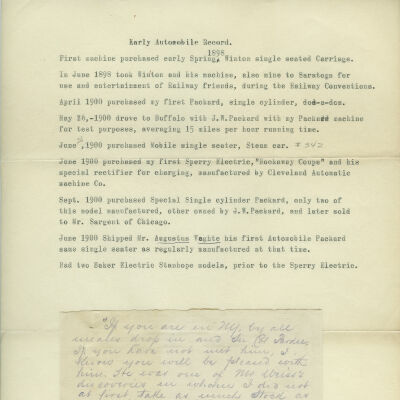 Early Automobile Record.
1898
First machine purchased early Spring, Winton single seated Carriage.
In June 1898 took Winton and his machine, also mine to Saratoga for
use and entertainment of Railway friends, during the Railway Conventions.
April 1900 purchased my first Packard, single cylinder,
May 26,-1900 drove to Buffalo with J.W.Packard with my Packard machine
for test purposes, averaging 15 miles per hour running time.
June ,1900 purchased Mobile single seater, Steam car. #342
June 1900 purchased my first Sperry Electric,"Rockaway Coupe" and his
special rectifier for charging, manufactured by Cleveland Automatic
machine Co.
Sept. 1900 purchased Special Single cylinder Packard, only two of
this model manufactured, other owned by J.W.Packard, and later sold
to Mr. Sargent of Chicago.
June 1900 Shipped Mr. Augustus his first Automobile Packard
same single seater as regularly manufactured at that time.
Had two Baker Electric Stanhope models, prior to the Sperry Electric.
"If you are in N.Y. by all
means drop in and
If you have not met him, I
know you will be pleased with
him. He was one of Mr Weiss's
discoveries in whom I did not
at first take as much stock as